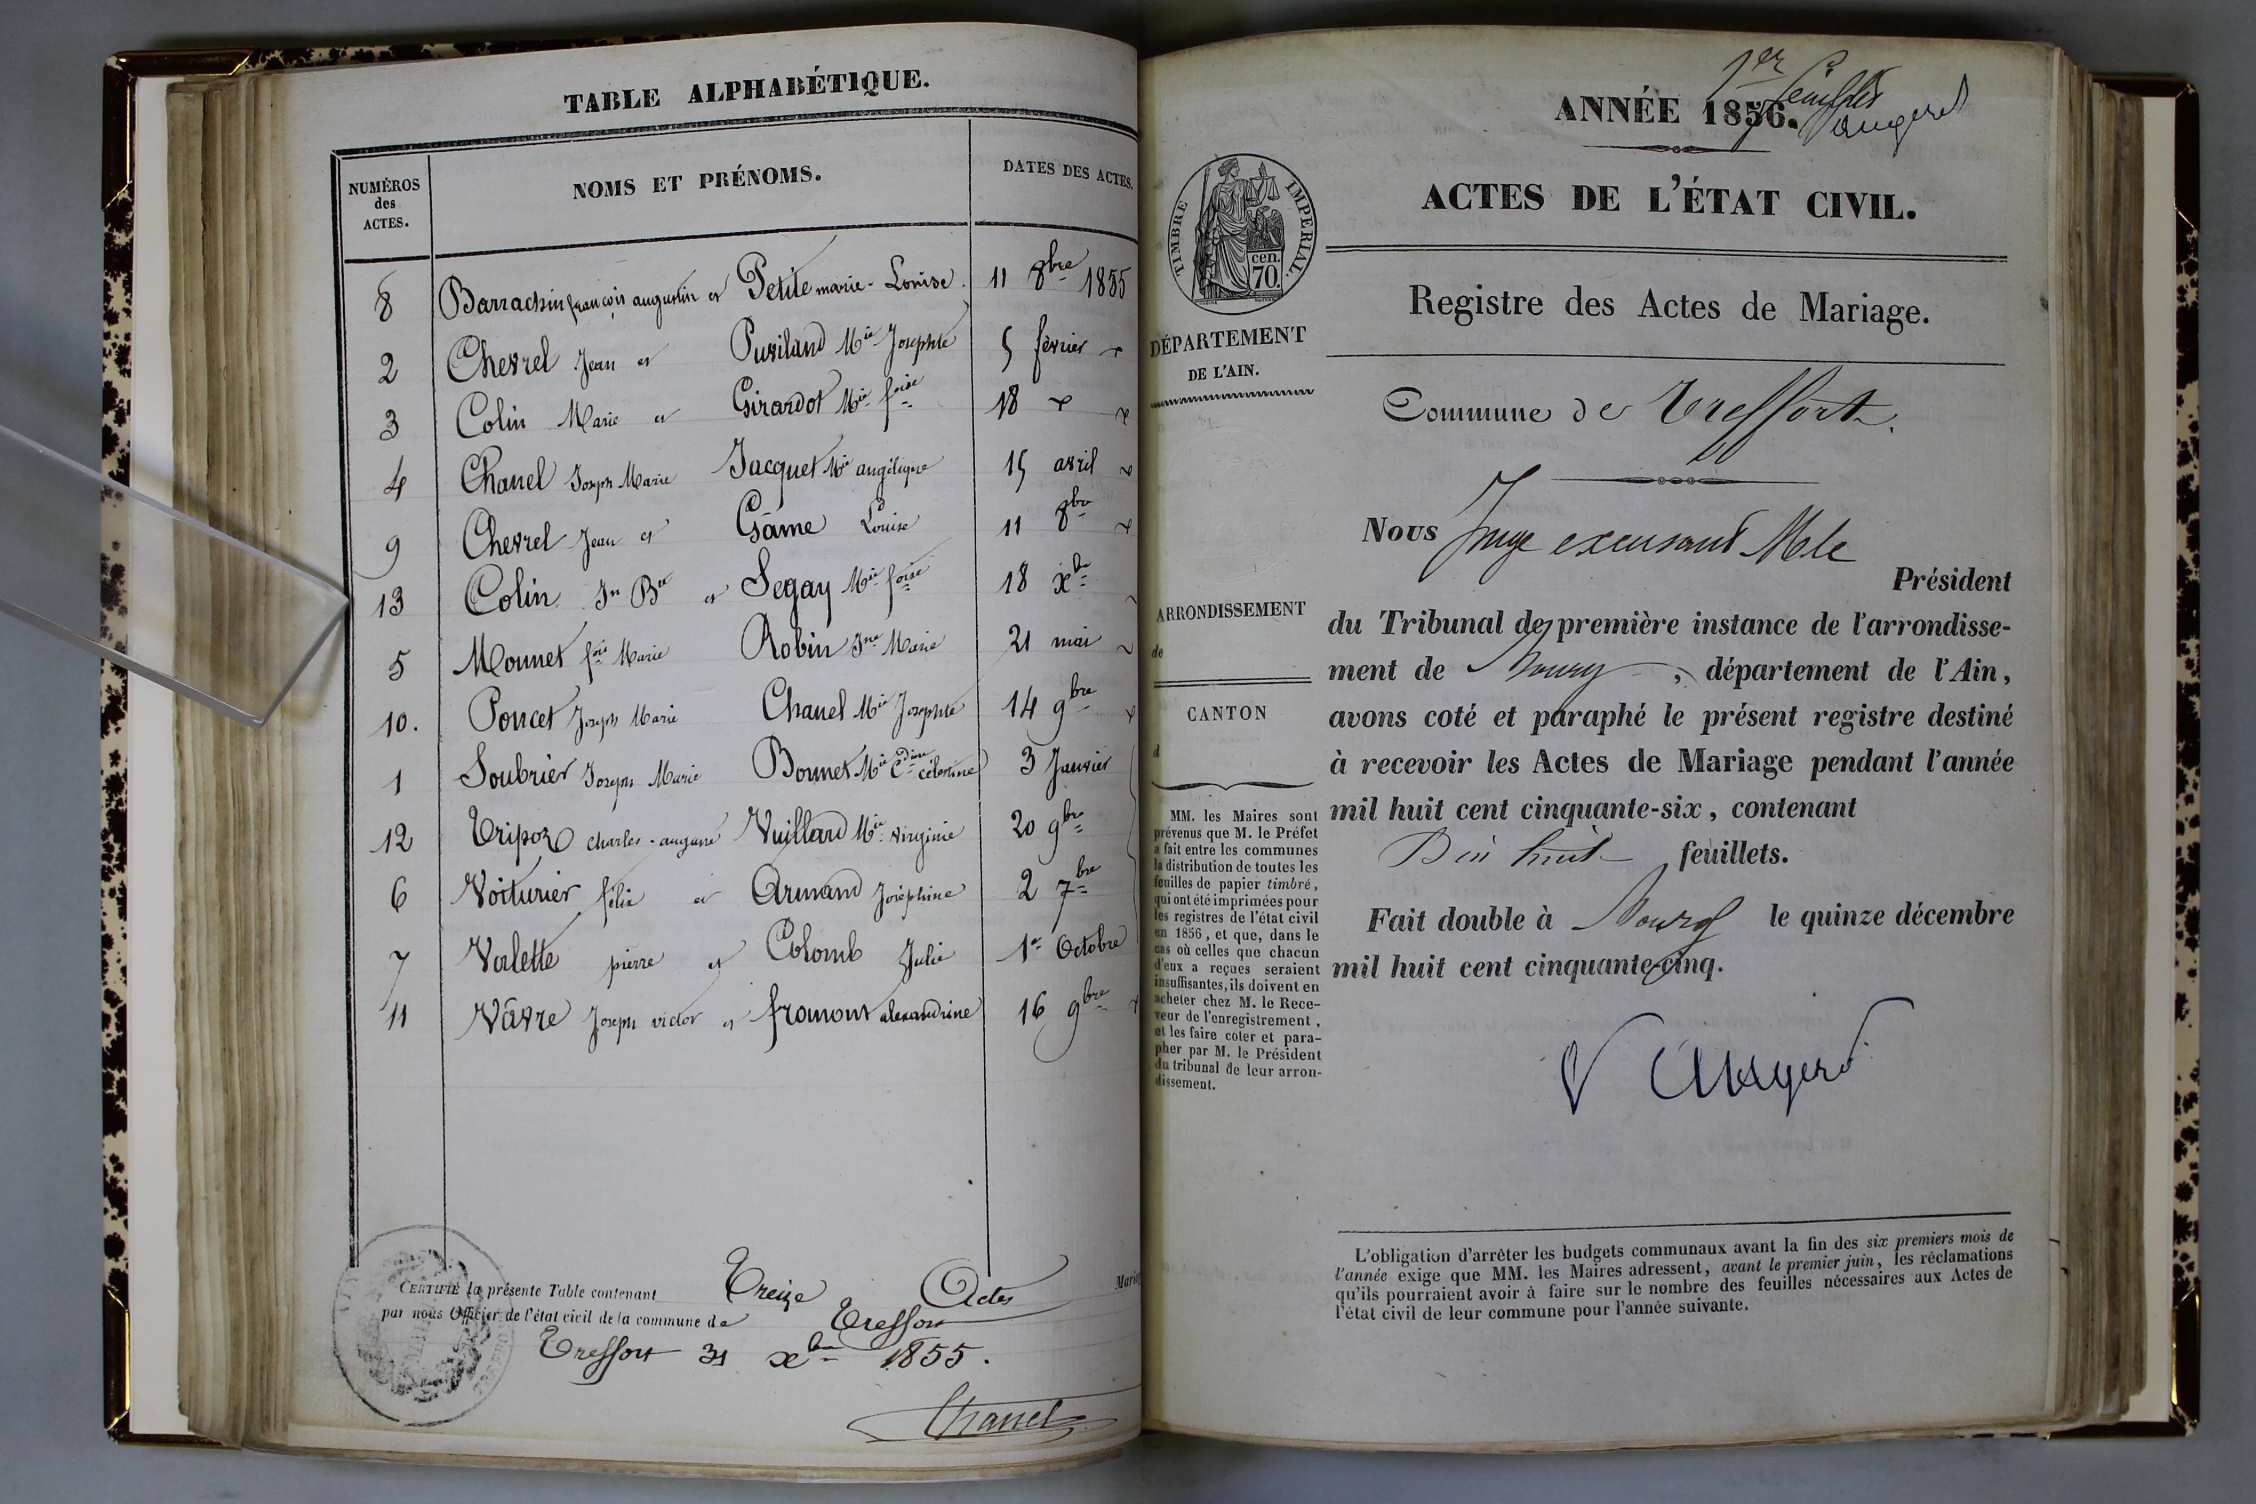 TABLE ALPHABÉTIQUE.
NUMÉROS
des
ACTES.
NOMS ET PRÉNOMS.
DATES DES ACTES.
8 Barrachin françois augustin et Petite marie-Louise. 11 8bre 1855
2 Chevrel Jean et Puviland Mie Josephte 5 février
3 Colin Marie et Girardot Mie foise 18
4 Chanel Joseph Marie Jacquet Mie angélique 15 avril
9 Chevrel Jean et Gâme Louise 11 8bre
13 Colin Jn Bte et Segay Mie foise 18 xbre
5 Monnet fois Marie Robin Jne Marie 21 mai
10. Poncet Joseph Marie Chanel Mie Josephte 14 9bre
1 Soubrier Joseph Marie Bonnet Mie Cdine célestine 3 Janvier
12 Tripoz Charles-auguste Vuillard Mie virginie 20 9bre
6 Voiturier félix et Armand Joséphine 2 7bre
7 Valette pierre et Colomb Julie 1er Octobre
11 Vâvre Joseph victor et fromont alexandrine 16 9bre
CERTIFIÉ la présente Table contenant Treize Actes
par nous Officier de l'état civil de la commune de Treffort
Treffort 31 xbre 1855.
Chanel
1er feuillet
ANNÉE 1856.
ACTES DE L'ÉTAT CIVIL.
TIMBRE IMPÉRIAL.
cen.
70.
Registre des Actes de Mariage.
DÉPARTEMENT
DE L'AIN.
Commune de Treffort.
Nous Juge excusant Mr le
Président
du Tribunal de première instance de l'arrondisse-
ment de Bourg, département de l'Ain,
avons coté et paraphé le présent registre destiné
à recevoir les Actes de Mariage pendant l'année
mil huit cent cinquante-six, contenant
Dix huit feuillets.
Fait double à Bourg le quinze décembre
mil huit cent cinquante-cinq.
ARRONDISSEMENT
de
CANTON
d
MM. les Maires sont
prévenus que M. le Préfet
a fait entre les communes
la distribution de toutes les
feuilles de papier timbré,
qui ont été imprimées pour
les registres de l'état civil
en 1856, et que, dans le
cas où celles que chacun
d'eux a reçues seraient
insuffisantes, ils doivent en
acheter chez M. le Rece-
veur de l'enregistrement,
et les faire coter et para-
pher par M. le Président
du tribunal de leur arron-
dissement.
L'obligation d'arrêter les budgets communaux avant la fin des six premiers mois de
l'année exige que MM. les Maires adressent, avant le premier juin, les réclamations
qu'ils pourraient avoir à faire sur le nombre des feuilles nécessaires aux Actes de
l'état civil de leur commune pour l'année suivante.